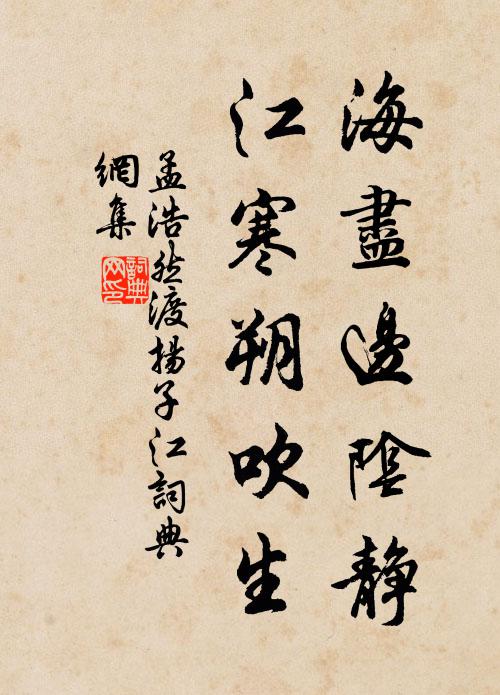 海盡邊陰靜
江寒朔吹生
孟浩然渡揚子江詞典
網集
詞典
网印